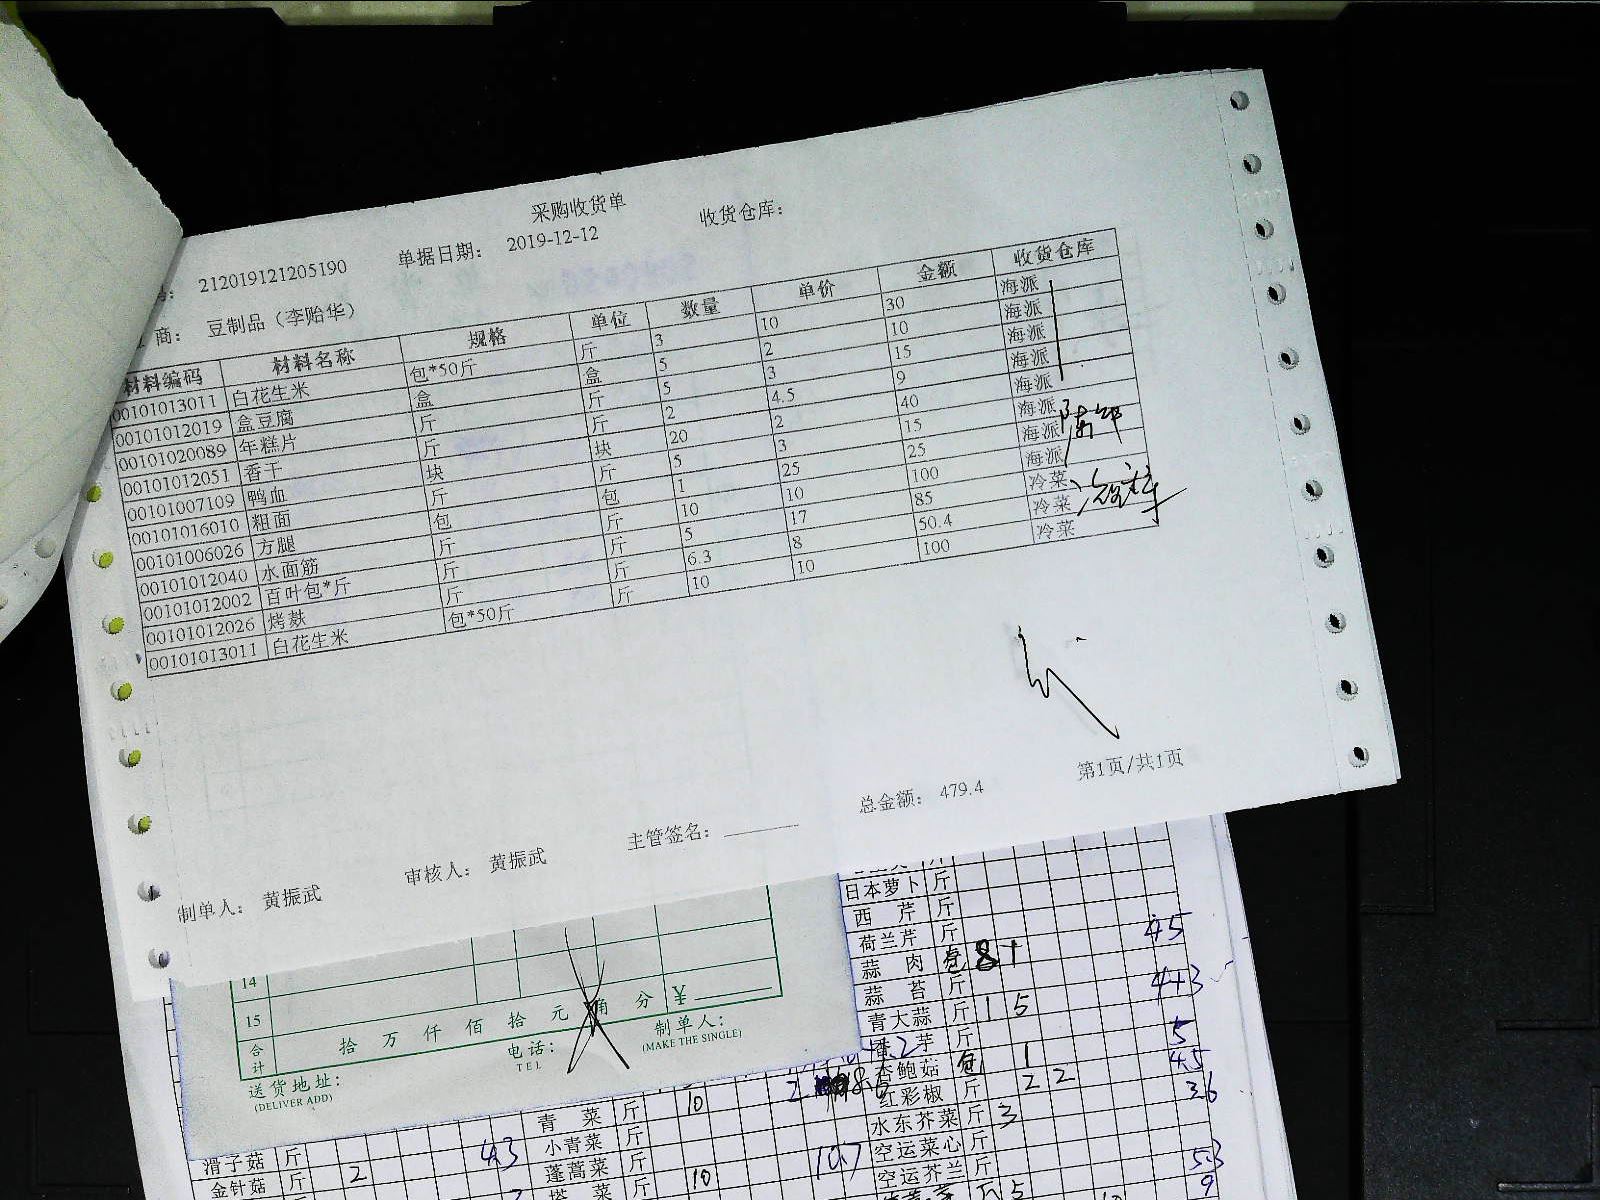 采购收货单
212019121205190 单据日期： 2019-12-12 收货仓库：
商： 豆制品（李贻华）
材料编码 材料名称 规格 单位 数量 单价 金额 收货仓库
00101013011 白花生米 包*50斤 斤 3 10 30 海派
00101012019 盒豆腐 盒 盒 5 2 10 海派
00101020089 年糕片 斤 斤 5 3 15 海派
00101012051 香干 斤 斤 2 4.5 9 海派
00101007109 鸭血 块 块 20 2 40 海派
00101016010 粗面 斤 斤 5 3 15 海派
00101006026 方腿 包 包 1 25 25 海派
00101012040 水面筋 斤 斤 10 10 100 海派
00101012002 百叶包*斤 斤 斤 5 17 85 冷菜
00101012026 烤麸 斤 斤 6.3 8 50.4 冷菜
00101013011 白花生米 包*50斤 斤 10 10 100 冷菜
第1页/共1页
制单人： 黄振武 审核人： 黄振武 主管签名： 总金额： 479.4
14
15
合计 拾 万 仟 佰 拾 元 角 分 ¥
送货地址：
(DELIVER ADD)
电话：
TEL
制单人：
(MAKE THE SINGLE)
日本萝卜 斤
西 芹 斤
荷兰芹 斤 45
蒜 肉
蒜 苔 斤 443
青大蒜 斤 1 5
5
杏鲍菇 1 45
红彩椒 斤 2 2 36
水东芥菜 斤 3
空运菜心 斤 53
空运芥兰 斤 9
青 菜 斤 10
小青菜 斤
蓬蒿菜 斤 10 107
滑子菇 斤 43
金针菇 斤 2